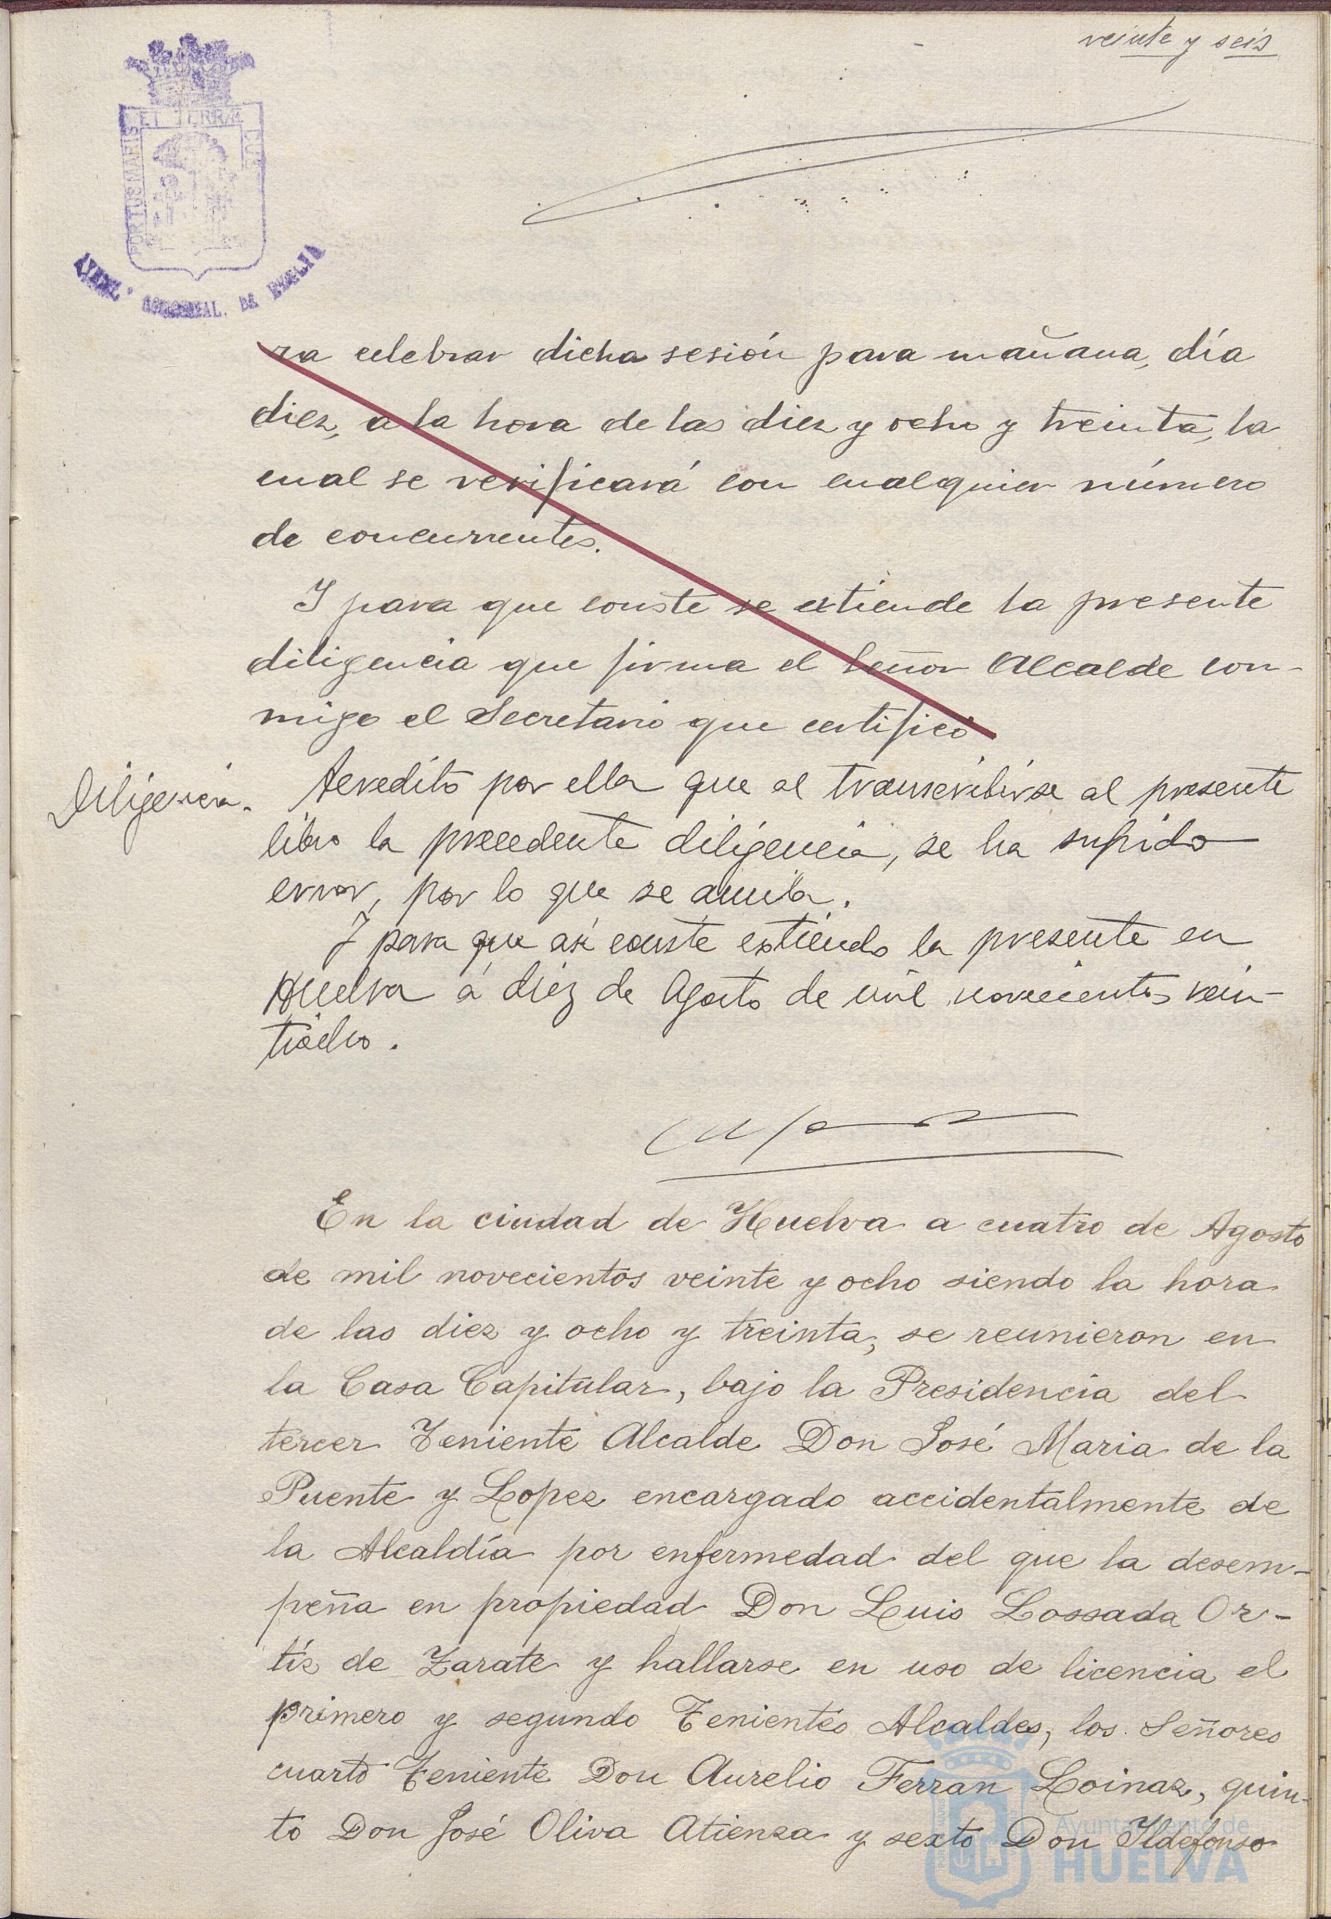 veinte y seis
PORTUS MARIS ET TERRÆ CUS
AYUNT.º DE HUELVA
ra celebrar dicha sesión para mañana, día
diez, a la hora de las diez y ocho y treinta, la
cual se verificará con cualquier número
de concurrentes.
Y para que conste se extiende la presente
diligencia que firma el Señor Alcalde con-
migo el Secretario que certifico
Diligencia.
Acredito por ella que al transcribirse al presente
libro la precedente diligencia, se ha sufrido
error, por lo que se anula.
Y para que así conste extiendo la presente en
Huelva á diez de Agosto de mil novecientos vein-
tiocho.
En la ciudad de Huelva a cuatro de Agosto
de mil novecientos veinte y ocho siendo la hora
de las diez y ocho y treinta, se reunieron en
la Casa Capitular, bajo la Presidencia del
tercer Teniente Alcalde Don José Maria de la
Puente y Lopez encargado accidentalmente de
la Alcaldía por enfermedad del que la desem-
peña en propiedad Don Luis Lossada Or-
tíz de Zarate y hallarse en uso de licencia el
primero y segundo Tenientes Alcaldes, los Señores
cuarto Teniente Don Aurelio Ferran Loinaz, quin-
to Don José Oliva Atienza y sexto Don Ildefonso
Ayuntamiento de
HUELVA